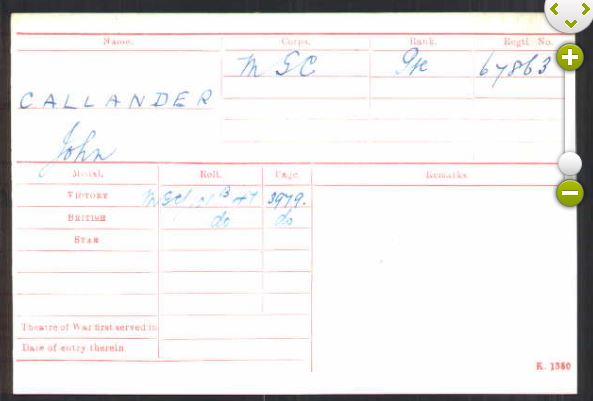 Name. Corps. Rank. Regtl. No.
M G C Pte 67863
CALLANDER
John
Medal. Roll. Page. Remarks.
VICTORY 3979.
BRITISH do do
STAR
Theatre of War first served in
Date of entry therein.
K. 1380